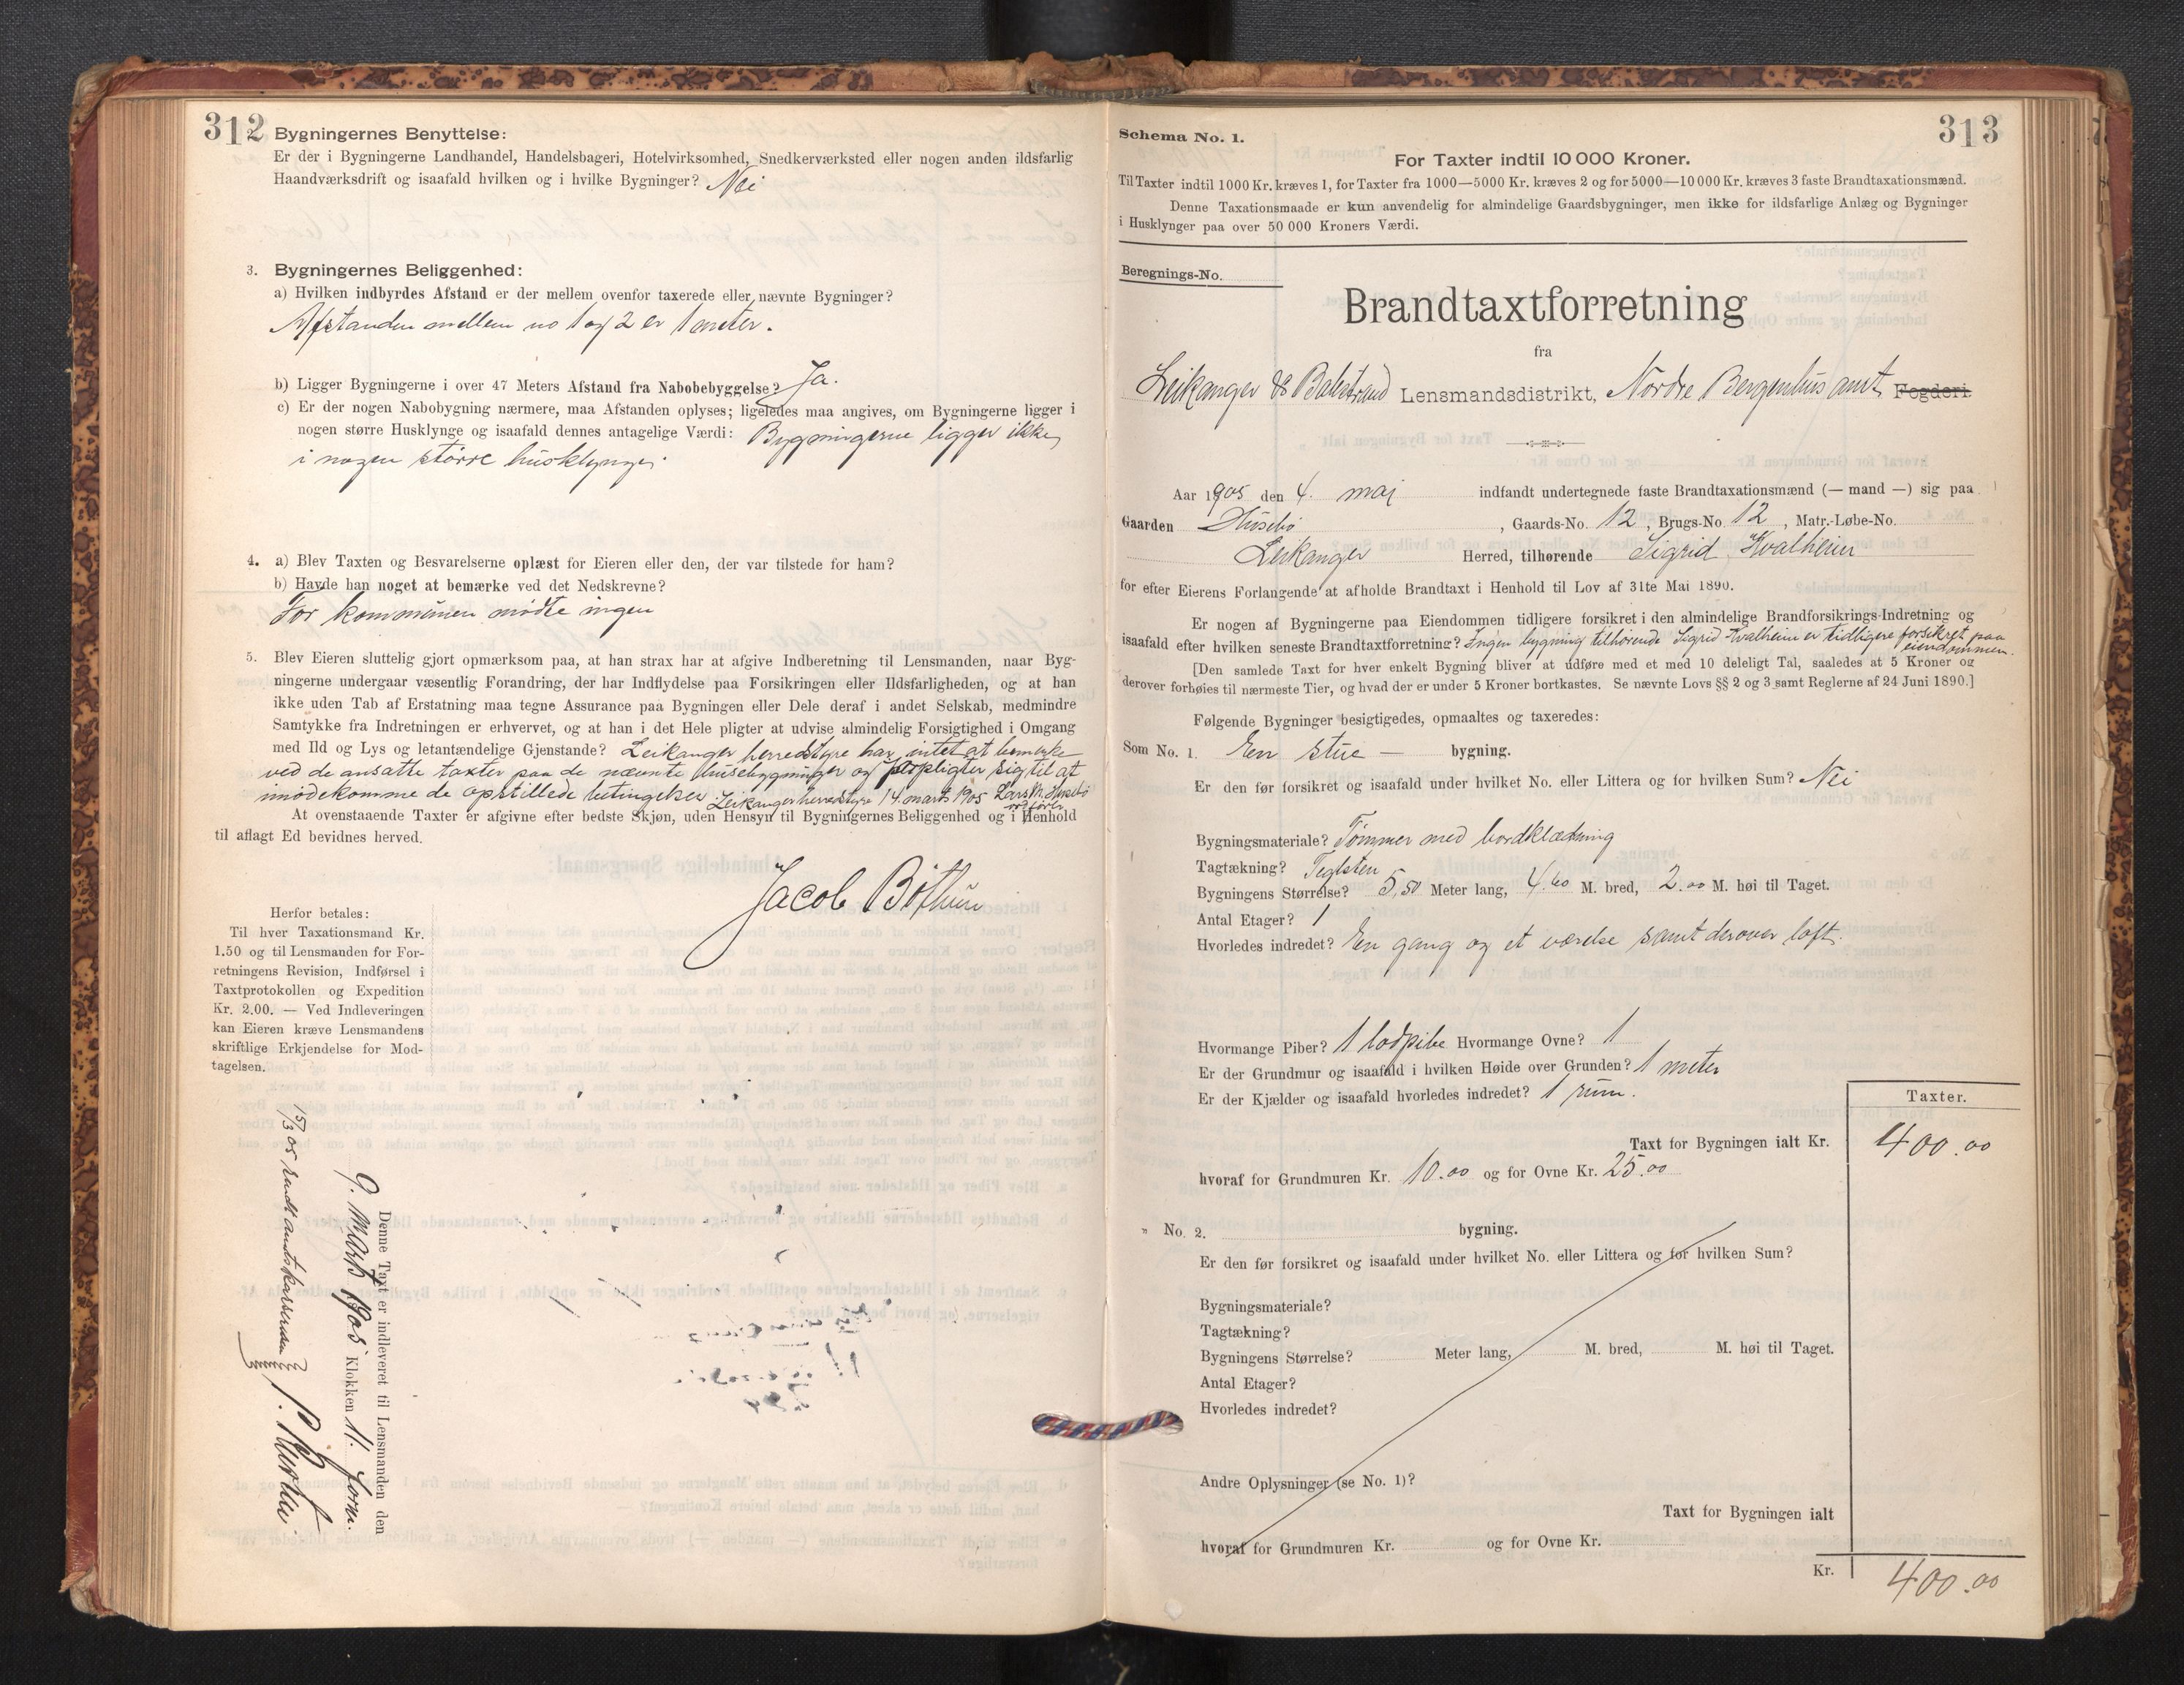 312
Bygningernes Benyttelse:
Er der i Bygningerne Landhandel, Handelsbageri, Hotelvirksomhed, Snedkerværksted eller nogen anden ildsfarlig
Haandværksdrift og isaafald hvilken og i hvilke Bygninger? Nei
3. Bygningernes Beliggenhed:
a) Hvilken indbyrdes Afstand er der mellem ovenfor taxerede eller nævnte Bygninger?
Afstanden mellem no 1 og 2 er 1 meter.
b) Ligger Bygningerne i over 47 Meters Afstand fra Nabobebyggelse? Ja.
c) Er der nogen Nabobygning nærmere, maa Afstanden oplyses; ligeledes maa angives, om Bygningerne ligger i
nogen større Husklynge og isaafald dennes antagelige Værdi: Bygningerne ligger ikke
i nogen större husklynge.
4. a) Blev Taxten og Besvarelserne oplæst for Eieren eller den, der var tilstede for ham?
b) Havde han noget at bemærke ved det Nedskrevne?
For kommunen mödte ingen
5. Blev Eieren sluttelig gjort opmærksom paa, at han strax har at afgive Indberetning til Lensmanden, naar Byg-
ningerne undergaar væsentlig Forandring, der har Indflydelse paa Forsikringen eller Ildsfarligheden, og at han
ikke uden Tab af Erstatning maa tegne Assurance paa Bygningen eller Dele deraf i andet Selskab, medmindre
Samtykke fra Indretningen er erhvervet, og at han i det Hele pligter at udvise almindelig Forsigtighed i Omgang
med Ild og Lys og letantændelige Gjenstande? Leikanger herredstyre har intet at bemerke
ved de ansatte taxter paa de nævnte husebygninger og forpligter sig til at
imödekomme de opstillede betingelser Leikanger herredstyre 14. marts 1905 Lars M. Husebö
ordförer
At ovenstaaende Taxter er afgivne efter bedste Skjøn, uden Hensyn til Bygningernes Beliggenhed og i Henhold
til aflagt Ed bevidnes herved.
Jacob Böthun
Herfor betales:
Til hver Taxationsmand Kr.
1.50 og til Lensmanden for For-
retningens Revision, Indførsel i
Taxtprotokollen og Expedition
Kr. 2.00. — Ved Indleveringen
kan Eieren kræve Lensmandens
skriftlige Erkjendelse for Mod-
tagelsen.
Denne Taxt er indleveret til Lensmanden den
9. Marts 1905 Klokken 11. form.
15/3 05 sendt amtskassereren
313
Schema No. 1.
For Taxter indtil 10 000 Kroner.
Til Taxter indtil 1000 Kr. kræves 1, for Taxter fra 1000—5000 Kr. kræves 2 og for 5000—10 000 Kr. kræves 3 faste Brandtaxationsmænd.
Denne Taxationsmaade er kun anvendelig for almindelige Gaardsbygninger, men ikke for ildsfarlige Anlæg og Bygninger
i Husklynger paa over 50 000 Kroners Værdi.
Beregnings-No.
Brandtaxtforretning
fra
Leikanger & Balestrand Lensmandsdistrikt, Nordre Bergenhus amt Fogderi
Aar 1905 den 4. maj indfandt undertegnede faste Brandtaxationsmænd (— mand —) sig paa
Gaarden Husebö, Gaards-No. 12, Brugs-No. 12, Matr.-Løbe-No.
Leikanger Herred, tilhørende Sigrid Kvalheim
for efter Eierens Forlangende at afholde Brandtaxt i Henhold til Lov af 31te Mai 1890.
Er nogen af Bygningerne paa Eiendommen tidligere forsikret i den almindelige Brandforsikrings-Indretning og
isaafald efter hvilken seneste Brandtaxtforretning? Ingen bygning tilhörende Sigrid Kvalheim er tidligere forsikret paa
eiendommen.
[Den samlede Taxt for hver enkelt Bygning bliver at udføre med et med 10 deleligt Tal, saaledes at 5 Kroner og
derover forhøies til nærmeste Tier, og hvad der er under 5 Kroner bortkastes. Se nævnte Lovs §§ 2 og 3 samt Reglerne af 24 Juni 1890.]
Følgende Bygninger besigtigedes, opmaaltes og taxeredes:
Som No. 1. En stue — bygning.
Er den før forsikret og isaafald under hvilket No. eller Littera og for hvilken Sum? Nei
Bygningsmateriale? Tömmer med bordklædning
Tagtækning? Teglsten
Bygningens Størrelse? 5,50 Meter lang, 4.60 M. bred, 2.00 M. høi til Taget.
Antal Etager? 1
Hvorledes indredet? En gang og et værelse samt derover loft.
Hvormange Piber? 1 lodpibe Hvormange Ovne? 1
Er der Grundmur og isaafald i hvilken Høide over Grunden? 1 meter
Er der Kjælder og isaafald hvorledes indredet? 1 rum.
Taxter.
Taxt for Bygningen ialt Kr. 400.00
hvoraf for Grundmuren Kr. 10.00 og for Ovne Kr. 25.00
" No. 2. bygning.
Er den før forsikret og isaafald under hvilket No. eller Littera og for hvilken Sum?
Bygningsmateriale?
Tagtækning?
Bygningens Størrelse? Meter lang, M. bred, M. høi til Taget.
Antal Etager?
Hvorledes indredet?
Andre Oplysninger (se No. 1)?
Taxt for Bygningen ialt
hvoraf for Grundmuren Kr. og for Ovne Kr.
Kr. 400.00